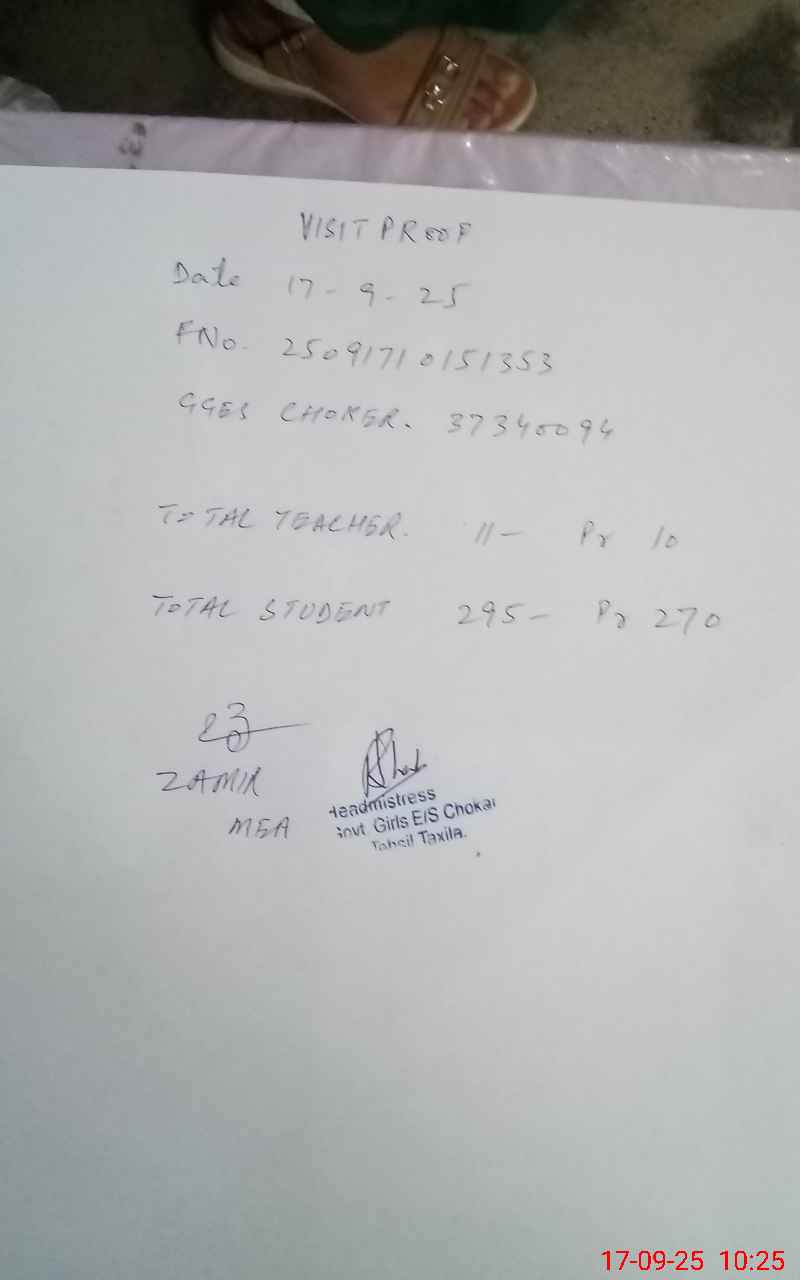 VISIT PROOF
Date 17-9-25
FNo. 25091710151353
GGES CHOKER. 37340094
TOTAL TEACHER. 11- Pr 10
TOTAL STUDENT 295- Pr 270
ZAMIR
MEA
Headmistress
Govt Girls E/S Chokar
Tahsil Taxila.
17-09-25 10:25